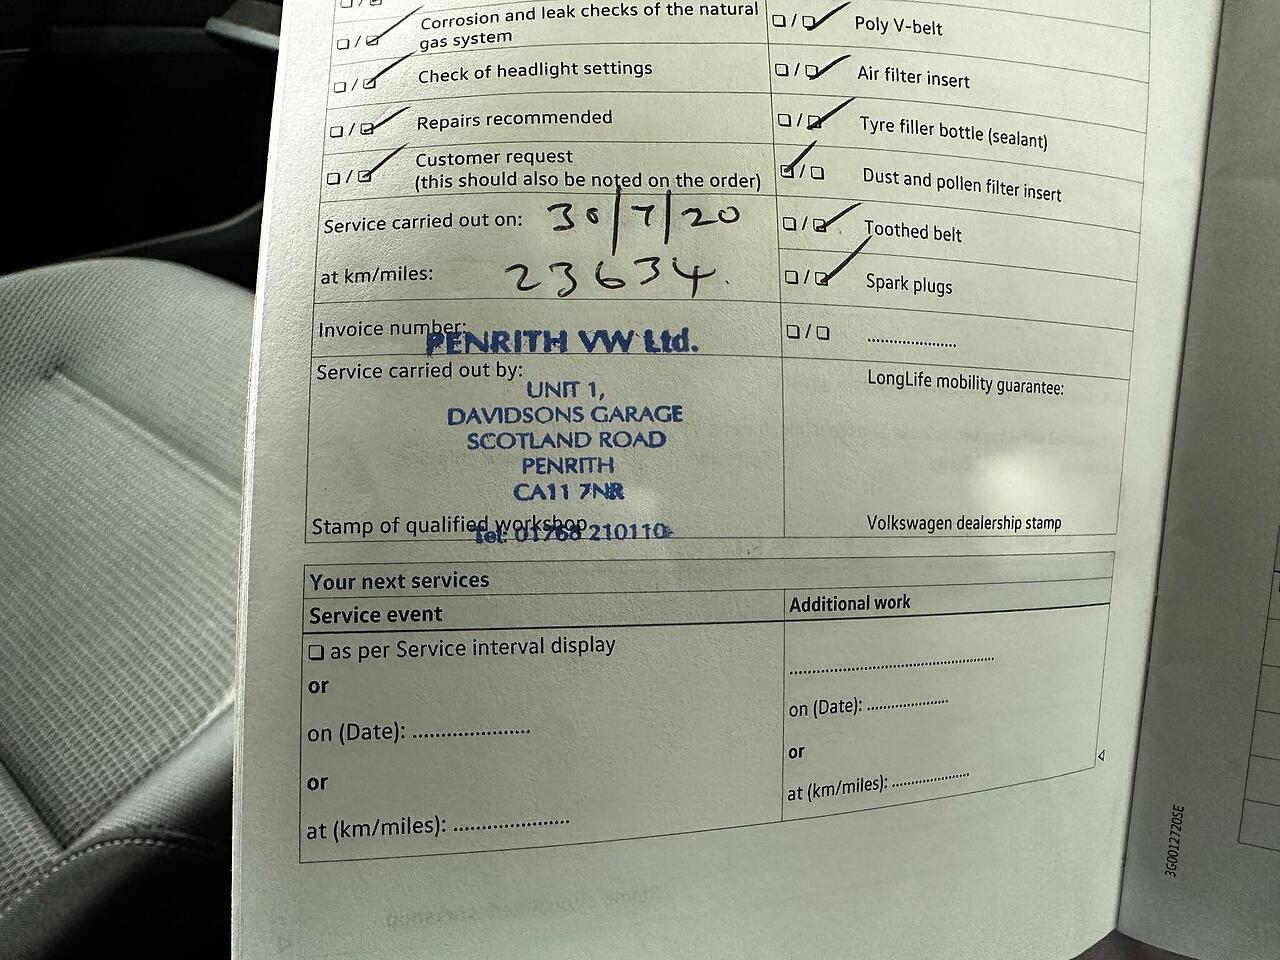 Corrosion and leak checks of the natural
gas system
Check of headlight settings
Repairs recommended
Customer request
(this should also be noted on the order)
Service carried out on: 30/7/20
at km/miles: 23634.
Invoice number:
PENRITH VW Ltd.
Service carried out by:
UNIT 1,
DAVIDSONS GARAGE
SCOTLAND ROAD
PENRITH
CA11 7NR
Stamp of qualified workshop
Tel: 01768 210110
Poly V-belt
Air filter insert
Tyre filler bottle (sealant)
Dust and pollen filter insert
Toothed belt
Spark plugs
....................
LongLife mobility guarantee:
Volkswagen dealership stamp
Your next services
Service event
as per Service interval display
or
on (Date): ....................
or
at (km/miles): ....................
Additional work
..................................................
on (Date): ....................
or
at (km/miles): ....................
3G0012720SE